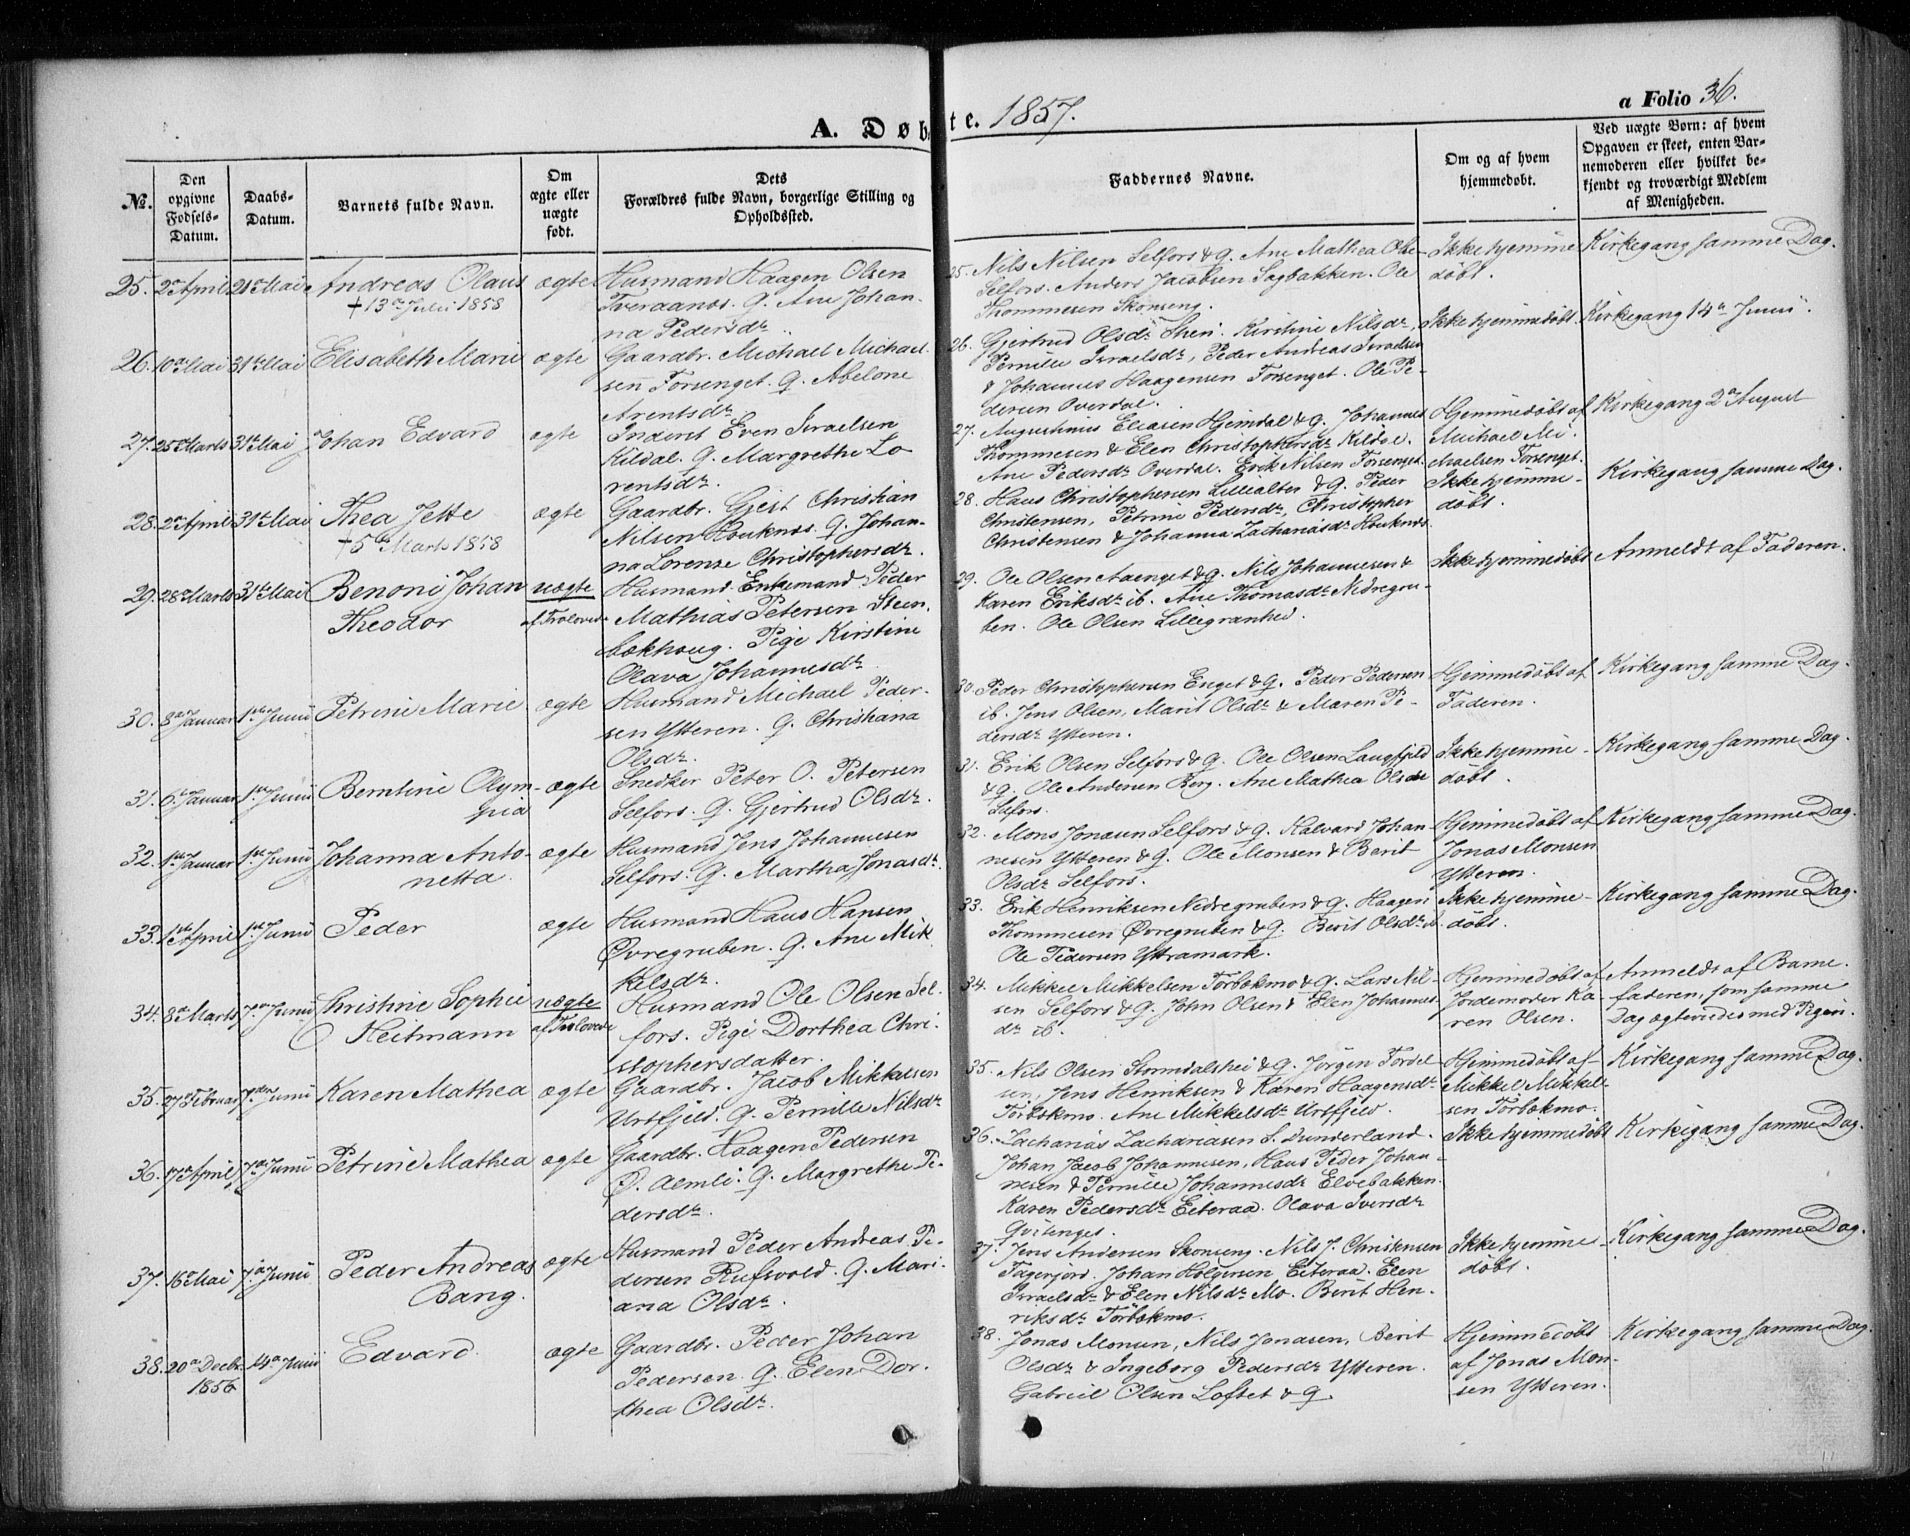 A. Døbte. 1857.
a Folio 36.
No.
Den opgivne Fødsels-Datum.
Daabs-Datum.
Barnets fulde Navn.
Om ægte eller uægte født.
Dets Forældres fulde Navn, borgerlige Stilling og Opholdssted.
Faddernes Navne.
Om og af hvem hjemmedøbt.
Ved uægte Børn: af hvem Opgaven er skeet, enten Barnemoderen eller hvilket bekjendt og troværdigt Medlem af Menigheden.
25. 2den April 21de Mai Andreas Olaus ægte Husmand Haagen Olsen
† 13de Juli 1858 Tveraanes. G. Ane Johan-
na Pedersdr.
25. Nils Nilsen Selfors & G. Ane Mathea Ols-
Selfors. Anders Jacobsen Sagbakken. Ole
Thommesen Skonseng.
Ikke hjemme-
døbt.
Kirkegang samme Dag.
26. 10de Mai 31te Mai Elisabeth Marie ægte Gaardbr. Michael Michael-
sen Forsenget. G. Abelone
Arentsdr.
26. Gjertrud Olsdr. Kirstine Nilsdr,
Pernille Israelsdr, Peder Andreas Israelsen
& Johannes Haagensen Forsenget. Ole Pe-
dersen Overdal.
Ikke hjemmedøbt.
Kirkegang 14de Junii.
27. 25de Marts 31te Mai Johan Edvard ægte Inderst Even Israelsen
Kildal. G. Margrethe Lo-
rentsdr.
27. Augustinus Eliasen Hjemdal & G. Johannes
Thommesen & Elen Christophersdr Kildal.
Ane Pedersdr Overdal. Erik Nilsen Forsenget.
Hjemmedøbt af
Michael Mi-
chaelsen Forsenget.
Kirkegang 2den August
28. 2den April 31te Mai Thea Jette ægte Gaardbr. Gjest Christian
† 5te Marts 1858 Nilsen Houknes. G. Johan-
na Lorense Christophersdr.
28. Hans Christophersen Lillealter & G. Peder
Christensen, Petrine Pedersdr, Christopher
Christensen & Johanna Zachariasdr Houknes.
Ikke hjemme-
døbt.
Kirkegang samme Dag.
29. 28de Marts 31te Mai Benoni Johan uægte Husmand Enkemand Peder
Theodor af Trolovede Mathias Petersen Steen-
bækhaug. Pige Kirstine
Olava Johannesdr.
29. Ole Olsen Aaenget & G. Nils Johannesen &
Karen Eriksdr ib. Ane Thomasdr Nedregru-
ben. Ole Olsen Lillegranhei.
Ikke hjemmedøbt
Anmeldt af Faderen.
30. 8de Januar 1ste Junii Petrine Marie ægte Husmand Michael Peder-
sen Ytteren. G. Christiana
Olsdr.
30. Peder Christophersen Enget & G. Peder Pedersen
ib. Jens Olsen, Marit Olsdr & Maren Pe-
dersdr Ytteren.
Hjemmedøbt af
Faderen.
Kirkegang samme Dag.
31. 6te Januar 1ste Junii Berntine Olym- ægte Snedker Peter O. Petersen
pia Selfors. G. Gjertrud Olsdr.
31. Erik Olsen Selfors & G. Ole Olsen Langfjeld
& G. Ole Andersen Berg. Ane Mathea Olsdr
Selfors.
Ikke hjemme-
døbt.
Kirkegang samme Dag.
32. 1ste Januar 1ste Junii Johanna Anto- ægte Husmand Jens Johannesen
netta Selfors. G. Martha Jonasdr.
32. Mons Jonasen Selfors & G. Halvard Johan-
nesen Ytteren & G. Ole Monsen & Berit
Olsdr Selfors.
Hjemmedøbt af
Jonas Monsen
Ytteren.
Kirkegang samme Dag.
33. 1ste April 1ste Junii Peder ægte Husmand Hans Hansen
Øvregruben. G. Ane Mik-
kelsdr.
33. Erik Henriksen Nedregruben & G. Haagen
Thommesen Øvregruben & G. Berit Olsdr ib.
Ole Pedersen Yttramark.
Ikke hjemme-
døbt.
Kirkegang samme Dag.
34. 8de Marts 7de Junii Christine Sophie uægte Husmand Ole Olsen Sel-
Heitmann af Trolovede fors. Pige Dorthea Chri-
stophersdatter.
34. Mikkel Mikkelsen Torbækmo & G. Lars Nil-
sen Selfors & G. John Olsen & Elen Johannes-
dr ib.
Hjemmedøbt af
Jordemoder Ka-
ren Olsen.
Anmeldt af Barne-
faderen, som samme
Dag ægteviedes med Pigen.
35. 27de Februar 7de Junii Karen Mathea ægte Gaardbr. Jacob Mikkelsen
Urtfjeld. G. Pernille Nilsdr.
35. Nils Olsen Strømdalshei & G. Jørgen Torsel-
sen, Jens Henriksen & Karen Haagensdr
Torbækmo. Ane Mikkelsdr Urtfjeld.
Hjemmedøbt af
Mikkel Mikkel-
sen Torbækmo.
Kirkegang samme Dag.
36. 17de April 7de Junii Petrine Mathea ægte Gaardbr. Haagen Pedersen
Ø. Aemli. G. Margrethe Pe-
dersdr.
36. Zacharias Zachariasen S. Dunderland.
Johan Jacob Johannesen, Hans Peder Johan-
nesen & Pernille Johannesdr Elvebakken.
Karen Pedersdr Eiteraa. Olava Iversdr
Gvitenget.
Ikke hjemmedøbt
Kirkegang samme Dag.
37. 16de Mai 7de Junii Peder Andreas ægte Husmand Peder Andreas Pe-
Bang. dersen Rufsvold. G. Mari-
ana Olsdr.
37. Jens Andersen Skonseng. Nils J. Christensen
Fagerjord. Johan Holgersen Eiteraa. Elen
Israelsdr & Elen Nilsdr Mo. Berit Hen-
riksdr Torbækmo.
Ikke hjemme-
døbt.
Kirkegang samme Dag.
38. 20de Decbr. 14de Junii Edvard ægte Gaardbr. Peder Johan
1856 Pedersen. G. Elen Dor-
thea Olsdr.
38. Jonas Monsen, Nils Jonasen, Berit
Olsdr & Ingeborg Pedersdr Ytteren.
Gabriel Olsen Loftet & G.
Hjemmedøbt
af Jonas Mon-
sen Ytteren.
Kirkegang samme Dag.